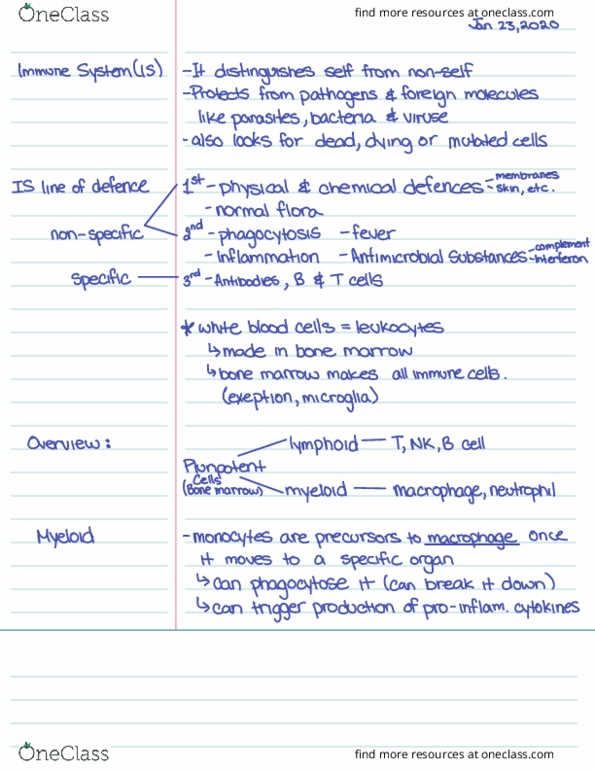 OneClass
find more resources at oneclass.com
Jan 23, 2020
Immune System (IS) -It distinguishes self from non-self
-Protects from pathogens & foreign molecules
like parasites, bacteria & viruse
-also looks for dead, dying or mutated cells
IS line of defence 1st - physical & chemical defences - membranes
skin, etc.
- normal flora
non-specific 2nd - phagocytosis - fever
- Inflammation - Antimicrobial Substances - complement
- interferon
specific 3rd - Antibodies, B & T cells
* white blood cells = leukocytes
↳ made in bone marrow
↳ bone marrow makes all immune cells.
(exeption, microglia)
Overview: lymphoid — T, NK, B cell
Pluripotent
Cells
(Bone marrow) myeloid — macrophage, neutrophil
Myeloid - monocytes are precursors to macrophage once
it moves to a specific organ
↳ can phagocytose it (can break it down)
↳ can trigger production of pro-inflam. cytokines
OneClass
find more resources at oneclass.com